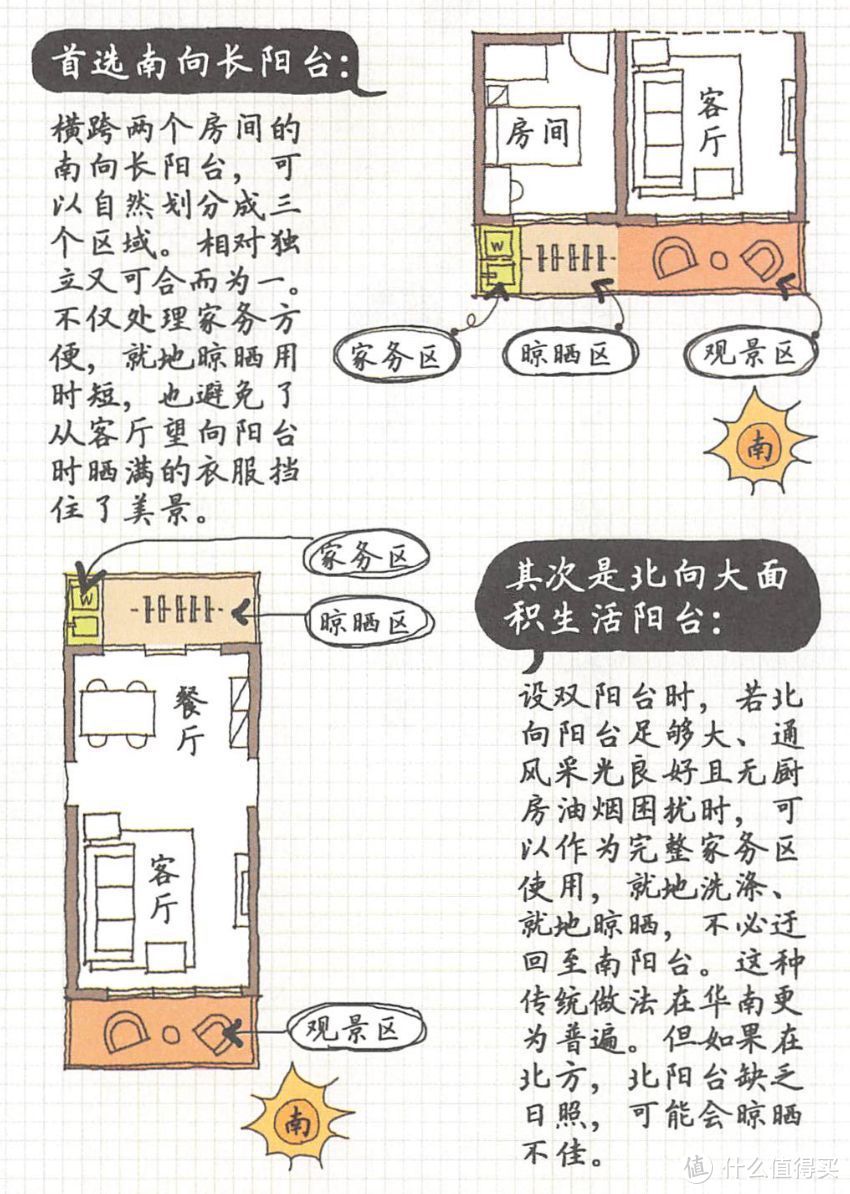 首选南向长阳台：
横跨两个房间的
南向长阳台，可
以自然划分成三
个区域。相对独
立又可合而为一。
不仅处理家务方
便，就地晾晒用
时短，也避免了
从客厅望向阳台
时晒满的衣服挡
住了美景。
房间
客厅
W
家务区
晾晒区
观景区
南
家务区
晾晒区
W
餐厅
客厅
观景区
南
其次是北向大面
积生活阳台：
设双阳台时，若北
向阳台足够大、通
风采光良好且无厨
房油烟困扰时，可
以作为完整家务区
使用，就地洗涤、
就地晾晒，不必迂
回至南阳台。这种
传统做法在华南更
为普遍。但如果在
北方，北阳台缺乏
日照，可能会晾晒
不佳。
值 什么值得买